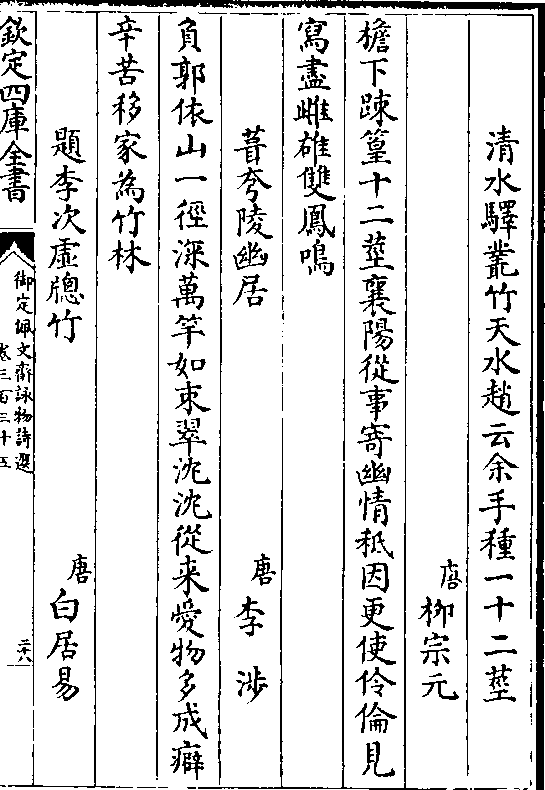 清水驛藂竹天水趙云余手種一十二莖
唐 柳宗元
檐下踈篁十二莖襄陽從事寄幽情秪因更使伶倫見
寫盡雌雄雙鳳鳴
葺夸陵幽居
唐 李 渉
負郭依山一徑深萬竿如束翠沈沈從来愛物多成癖
辛苦移家為竹林
題李次虛牕竹
唐 白居易
欽定四庫全書
御定佩文齋詠物詩選
卷三百三十五
二十八